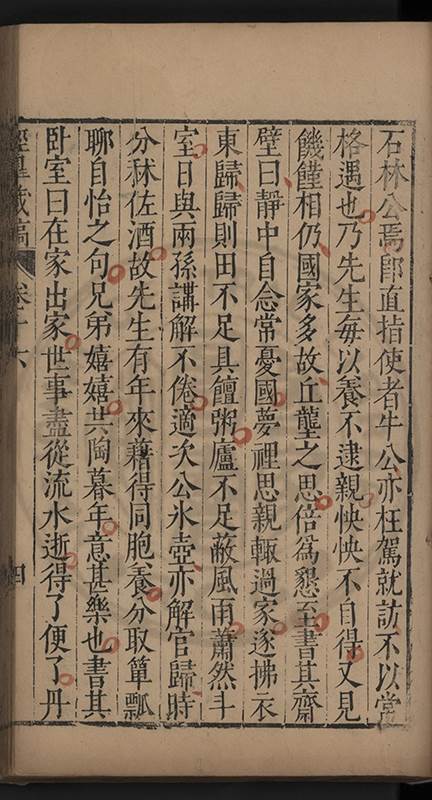 石林公焉卽直指使者牛公亦枉駕就訪不以常
格遇也乃先生每以養不逮親怏怏不自得又見
饑饉相仍國家多故丘壟之思倍爲懇至書其齋
壁曰靜中自念常憂國夢裡思親輙過家遂拂衣
東歸歸則田不足具饘粥廬不足蔽風雨蕭然斗
室日與兩孫講解不倦適次公氷壺亦解官歸時
分秫佐酒故先生有年來藉得同胞養分取箪瓢
聊自怡之句兄弟嬉嬉共陶暮年意甚樂也書其
卧室曰在家出家世事盡從流水逝得了便了丹
藏稿 卷十六 四